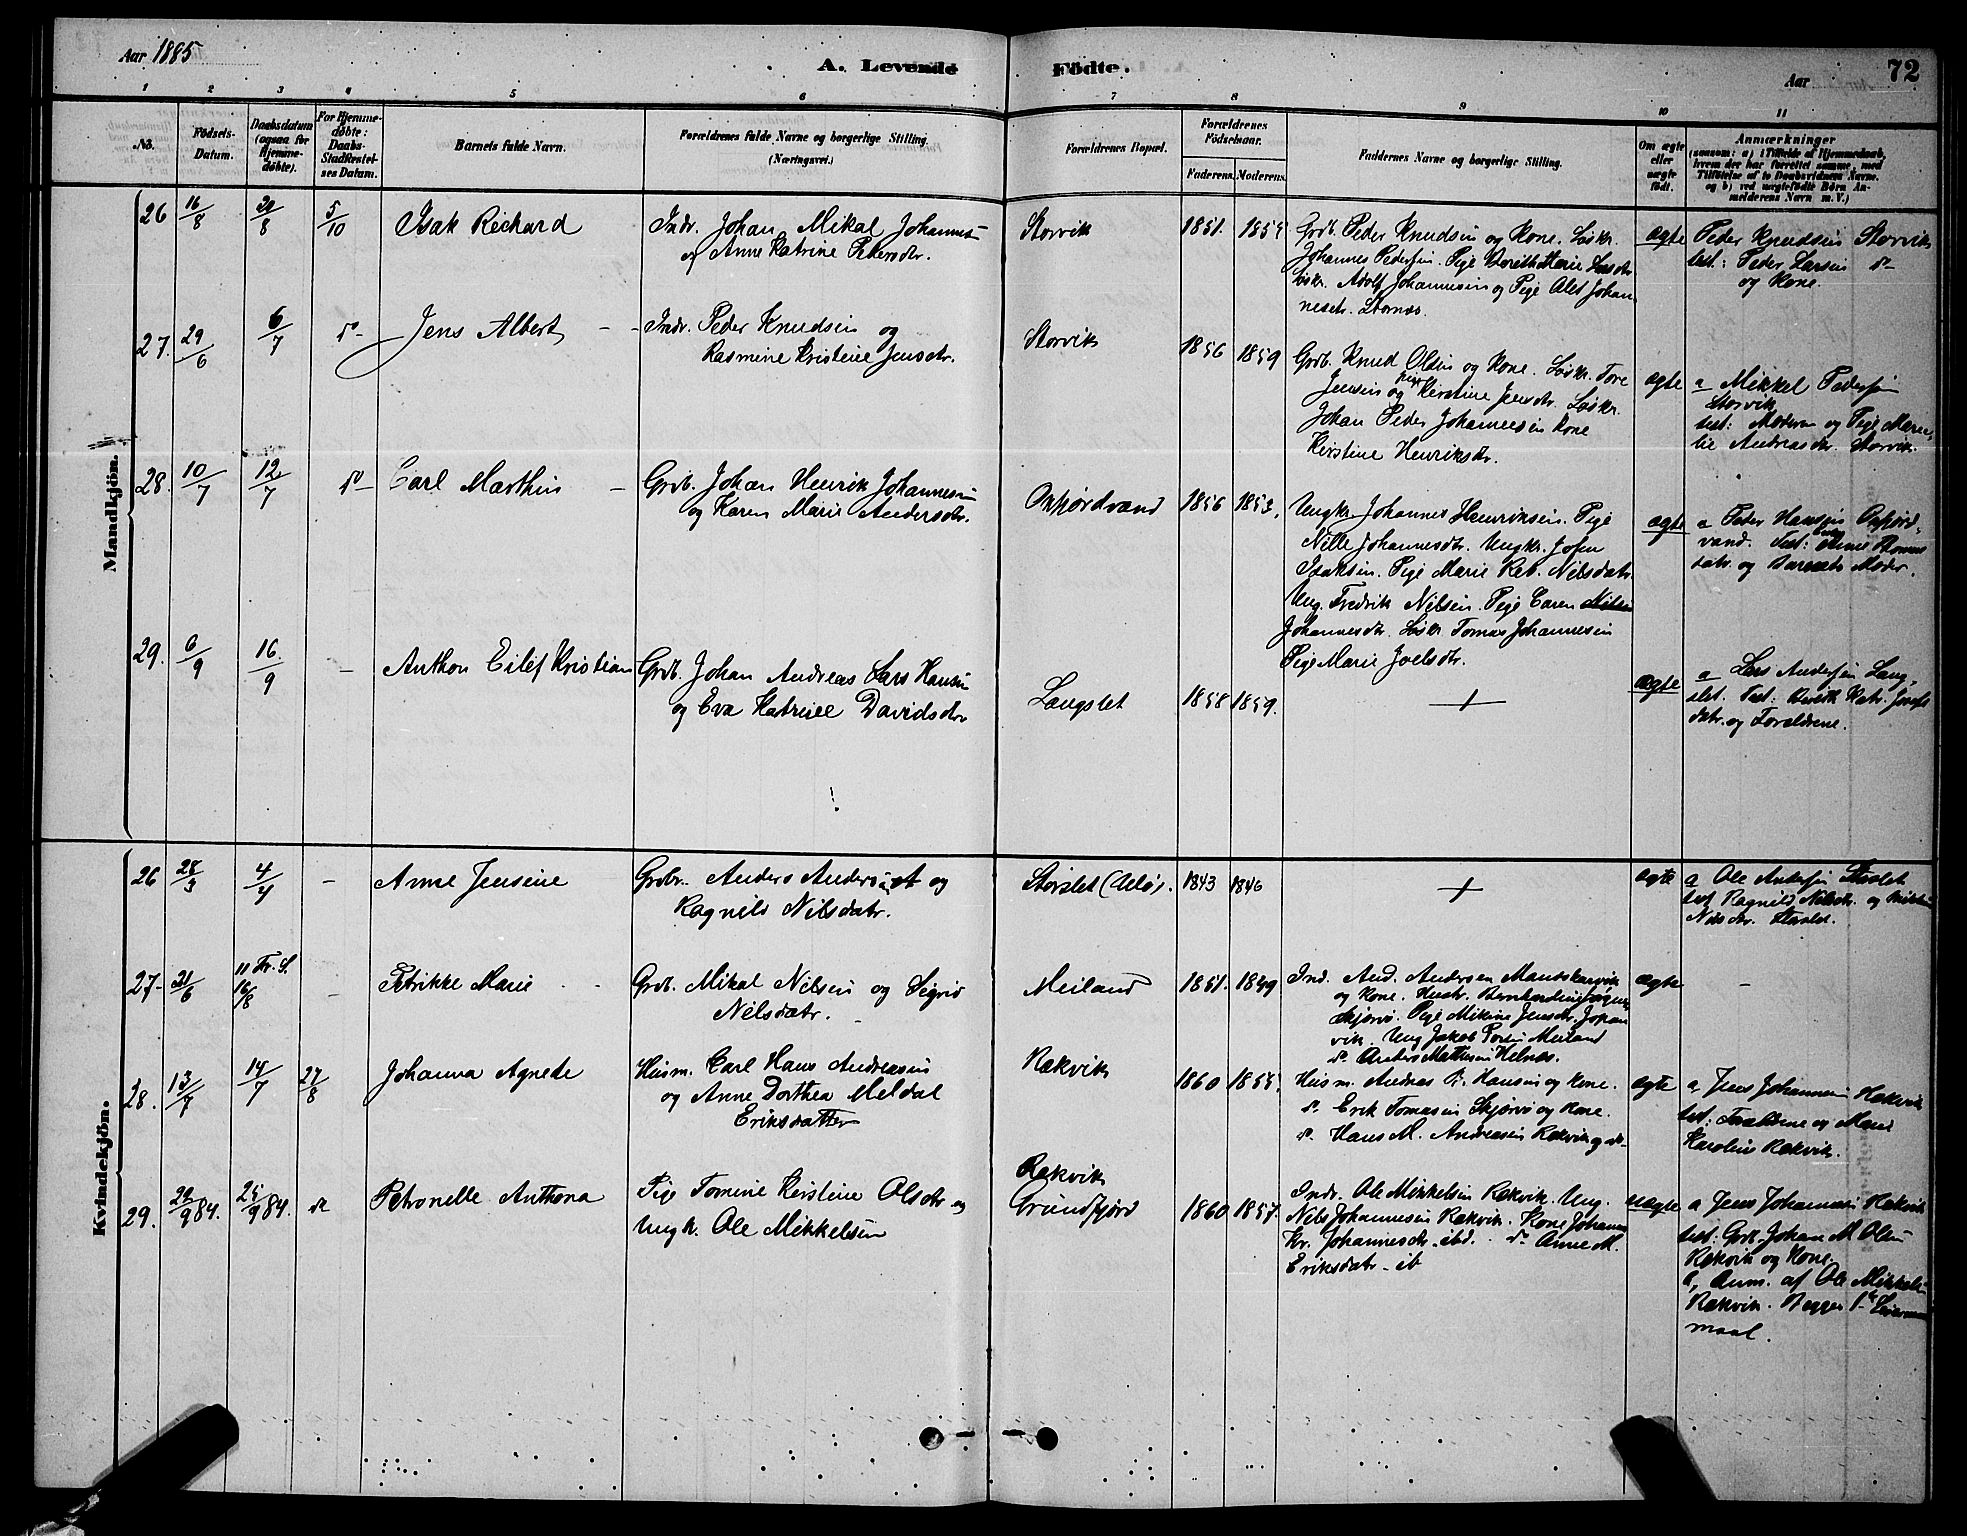 Aar 1885
A. Levende Födte.
Aar
72
1 2 3 4 5 6 7 8 9 10 11
No.
Födsels-
Datum.
Daabsdatum
(ogsaa for
Hjemme-
döbte).
For Hjemme-
döbte:
Daabs-
Stadfæstel-
ses Datum.
Barnets fulde Navn.
Forældrenes fulde Navne og borgerlige Stilling.
(Næringsvei.)
Forældrenes Bopæl.
Forældrenes
Födselsaar.
Faderens. Moderens.
Faddernes Navne og borgerlige Stilling.
Om ægte
eller
uægte
födt.
Anmærkninger
(saasom: a) i Tilfælde af Hjemmedaab,
hvem der har forrettet samme, med
Tilföielse af to Daabsvidners Navne,
og b) ved uægtefödte Börn An-
melderens Navn m. V.)
Mandkjön.
26 16/8 /8 5/10 Isak Richard
Indr. Johan Mikal Johannes
Anne Katrine Petersdtr.
Storvik 1851.
Grdb. Peder Knudsen og Kone. Løskr.
Johannes Pedersen. Pige Lars dtr
Løskr. Adolf Johannesen og Pige Johan
nesdtr. Stornæs.
ægte
Peder Knudsen Storvik
test: Peder Larsen
og Kone.
27. 29/6 6/7 Jens Albert
Indr. Peder Knudsen og
Rasmine Kristine Jensdtr.
Storvik 1856 1859
Grdb. Knud Olsen og Kone. Løskr. Tore
Jensen og Pige Kerstine Jensdtr. Løskr.
Johan Peder Johannesen Kone
Kerstine Henriksdtr.
ægte
a Mikkel Pedersen
Storvik
test: Moderen og Pige
Andreasdtr. Storvik.
28. 10/7 12/7 Carl Marthin
Grdb. Johan Henrik Johannesen
og Karen Marie Andersdtr.
1856 1853.
Ungkr. Johannes Henriksen. Pige
Nille Johannesdtr. Ungkr. Josen
Isaksen. Pige Marie Reb. Nilsdatr.
Ung. Fredrik Nilsen. Pige Caren
Johannesdtr. Løskr. Tomas Johannesen
Pige Marie Joelsdtr.
ægte
a Peder Hansen
vand. Test: Anne
datr. og Barnets Moder.
29. 6/9 16/9 - Anthon Eilef Kristian
Grdb. Johan Andreas Lars Hansen
og Eva Katrine Davidsdtr
Langslet 1858 1859.
ægte
a Lars Andersen Lang
slet. Test: Katr. Josefs
datr. og Forældrene.
Kvindekjön.
26 28/3 4/4 - Anne Jensine
Grdbr. Anders Andersen og
Ragnild Nilsdatr.
Storslet 1843 1846
ægte
a Ole Andersen Storslet
test Ragnild Nilsdtr. og
Nilsdtr. Storslet.
27 21/6 11 Tr. S. 16/8 - Petrikke Marie
Grdb. Mikal Nilsen og Sigrid
Nilsdatr.
Meiland 1851. 1849
Ind. And. Andersen Mauskarvik
og Kone. Hustr.
Skjervø. Pige Mikine Jensdtr. Johan
vik. Ung Jakob Meiland
Anders Mathisen Helnæs.
ægte -
28. 13/7 14/7 27/8 Johanna Agnete
Husm. Carl Hans Andreasen
og Anne Dorthea Meldal
Eriksdatter
Rækvik 1860
Husm. Andreas Hansen og Kone.
Erik Tomasen Skjervø og Kone.
Hans M. Andreasen Rækvik og
ægte
a, Jens Johannesen Rækvik
test: Forældrene og Maria
Rækvik.
29. /9 84. 25/9 84. Petronelle Anthona
Pige Tomine Kerstine Olsdtr og
Ungk. Ole Mikkelsen
Rækvik
Grundfjord 1860 1857.
Indr. Ole Mikkelsen Rækvik. Ung.
Nils Johannesen Rækvik. Kone Johanna
Kr. Johannesdtr. ibd. Anne M.
Eriksdatr. ib
uægte
a Jens Johannesen Rækvik
test. Grdb. Johan M Olsen
Rækvik og Kone.
b, Anm. af Ole Mikkelsen
Rækvik. Begges 1ste Leier-
maal.